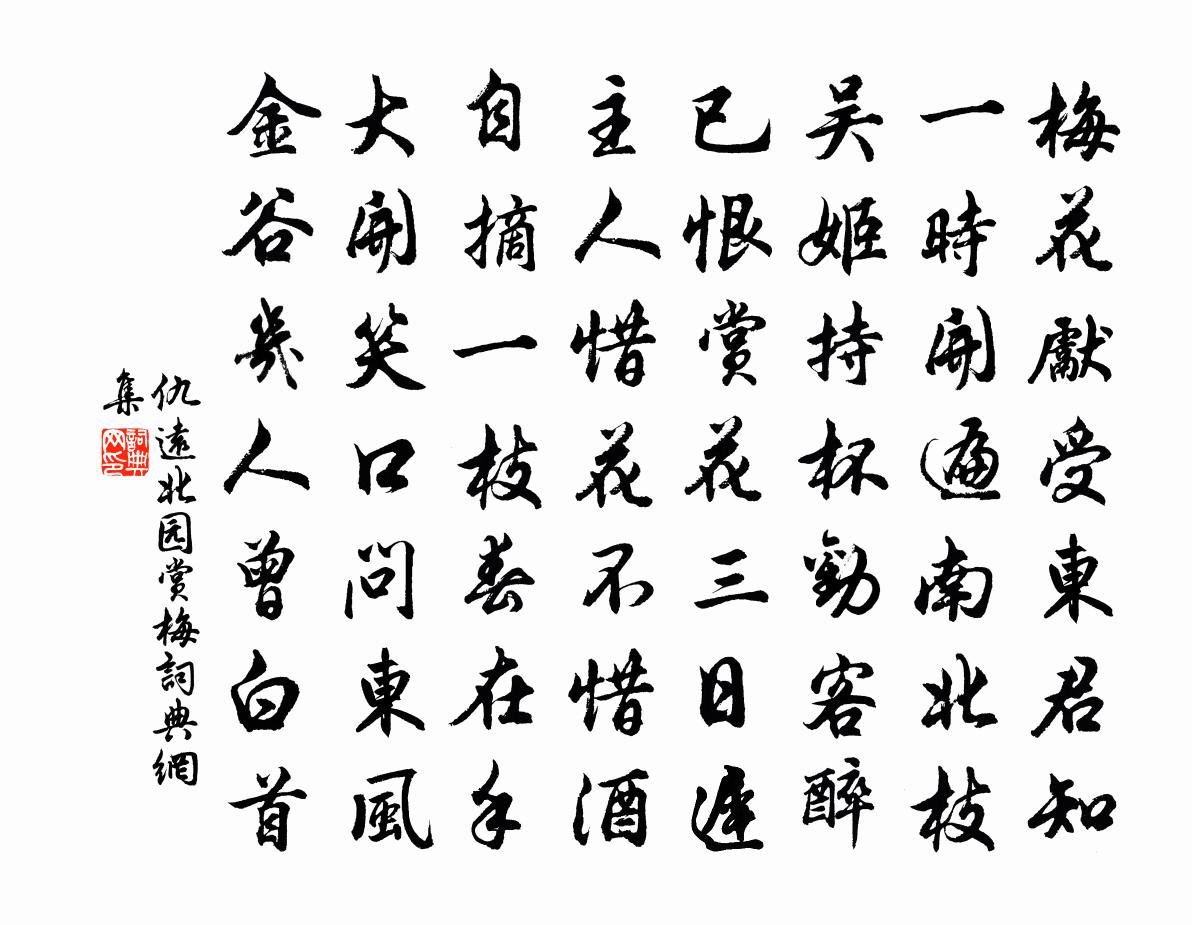 梅花獻受東君知
一時開遍南北枝
吴姬持杯勸客醉
已恨賞花三日遲
主人惜花不惜酒
自摘一枝春在手
大開笑口問東風
金谷幾人曾白首
仇遠北园賞梅詞典網
集
詞典网印